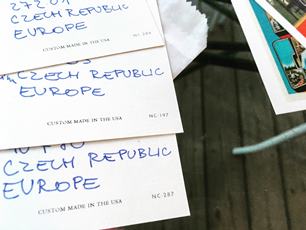 27201
CZECH REPUBLIC
EUROPE
CUSTOM MADE IN THE USA
CZECH REPUBLIC
EUROPE
CUSTOM MADE IN THE USA NC-197
CZECH REPUBLIC
EUROPE
CUSTOM MADE IN THE USA NC-287